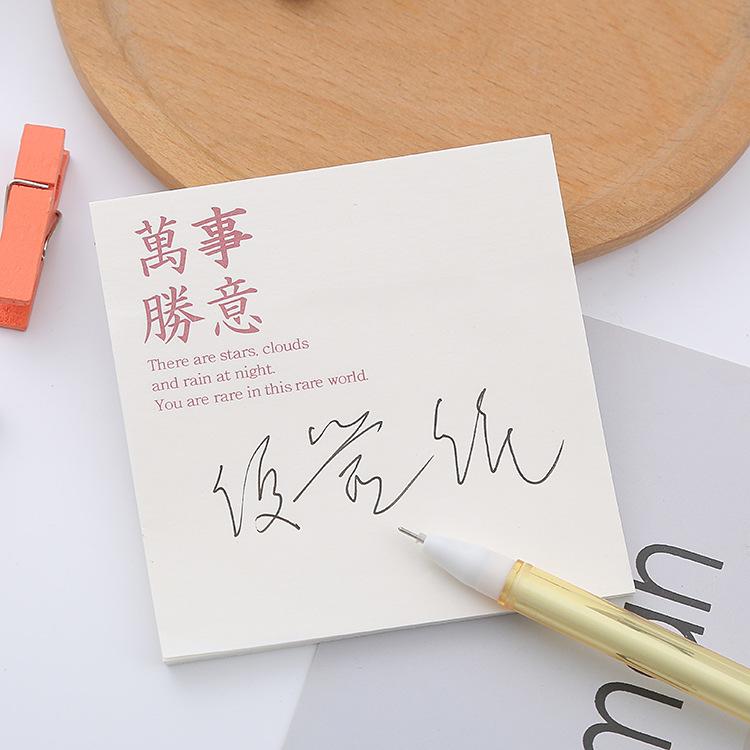 萬事
勝意
There are stars, clouds
and rain at night.
You are rare in this rare world.